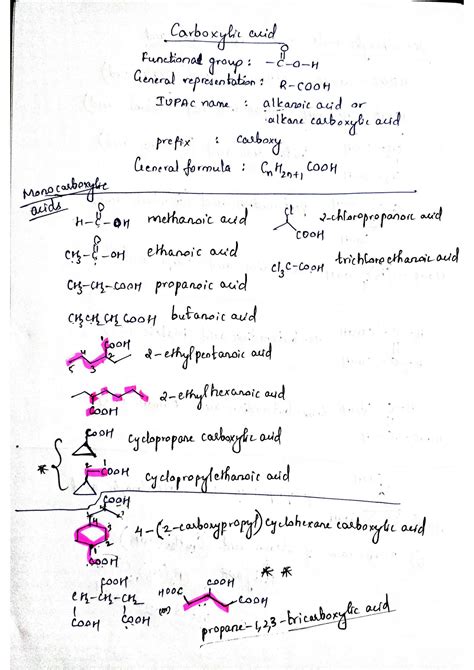 Carboxylic acid
Functional group : -C-O-H
O
General representation : R-COOH
IUPAC name : alkanoic acid or
alkane carboxylic acid
prefix : carboxy
General formula : CnH2n+1 COOH
Monocarboxylic
acids
O
H-C-OH methanoic acid
Cl
COOH
2-chloropropanoic acid
O
CH3-C-OH ethanoic acid
Cl3C-COOH trichloroethanoic acid
CH3-CH2-COOH propanoic acid
CH3CH2CH2COOH butanoic acid
COOH 2-ethylpentanoic acid
5 4 3 2 1
COOH 2-ethylhexanoic acid
COOH cyclopropane carboxylic acid
*
COOH cyclopropylethanoic acid
2 1
COOH
4-(2-carboxypropyl)cyclohexane carboxylic acid
4 3 2 1
COOH
COOH
CH2-CH-CH2
COOH COOH
(or)
HOOC COOH COOH
* *
propane-1,2,3-tricarboxylic acid